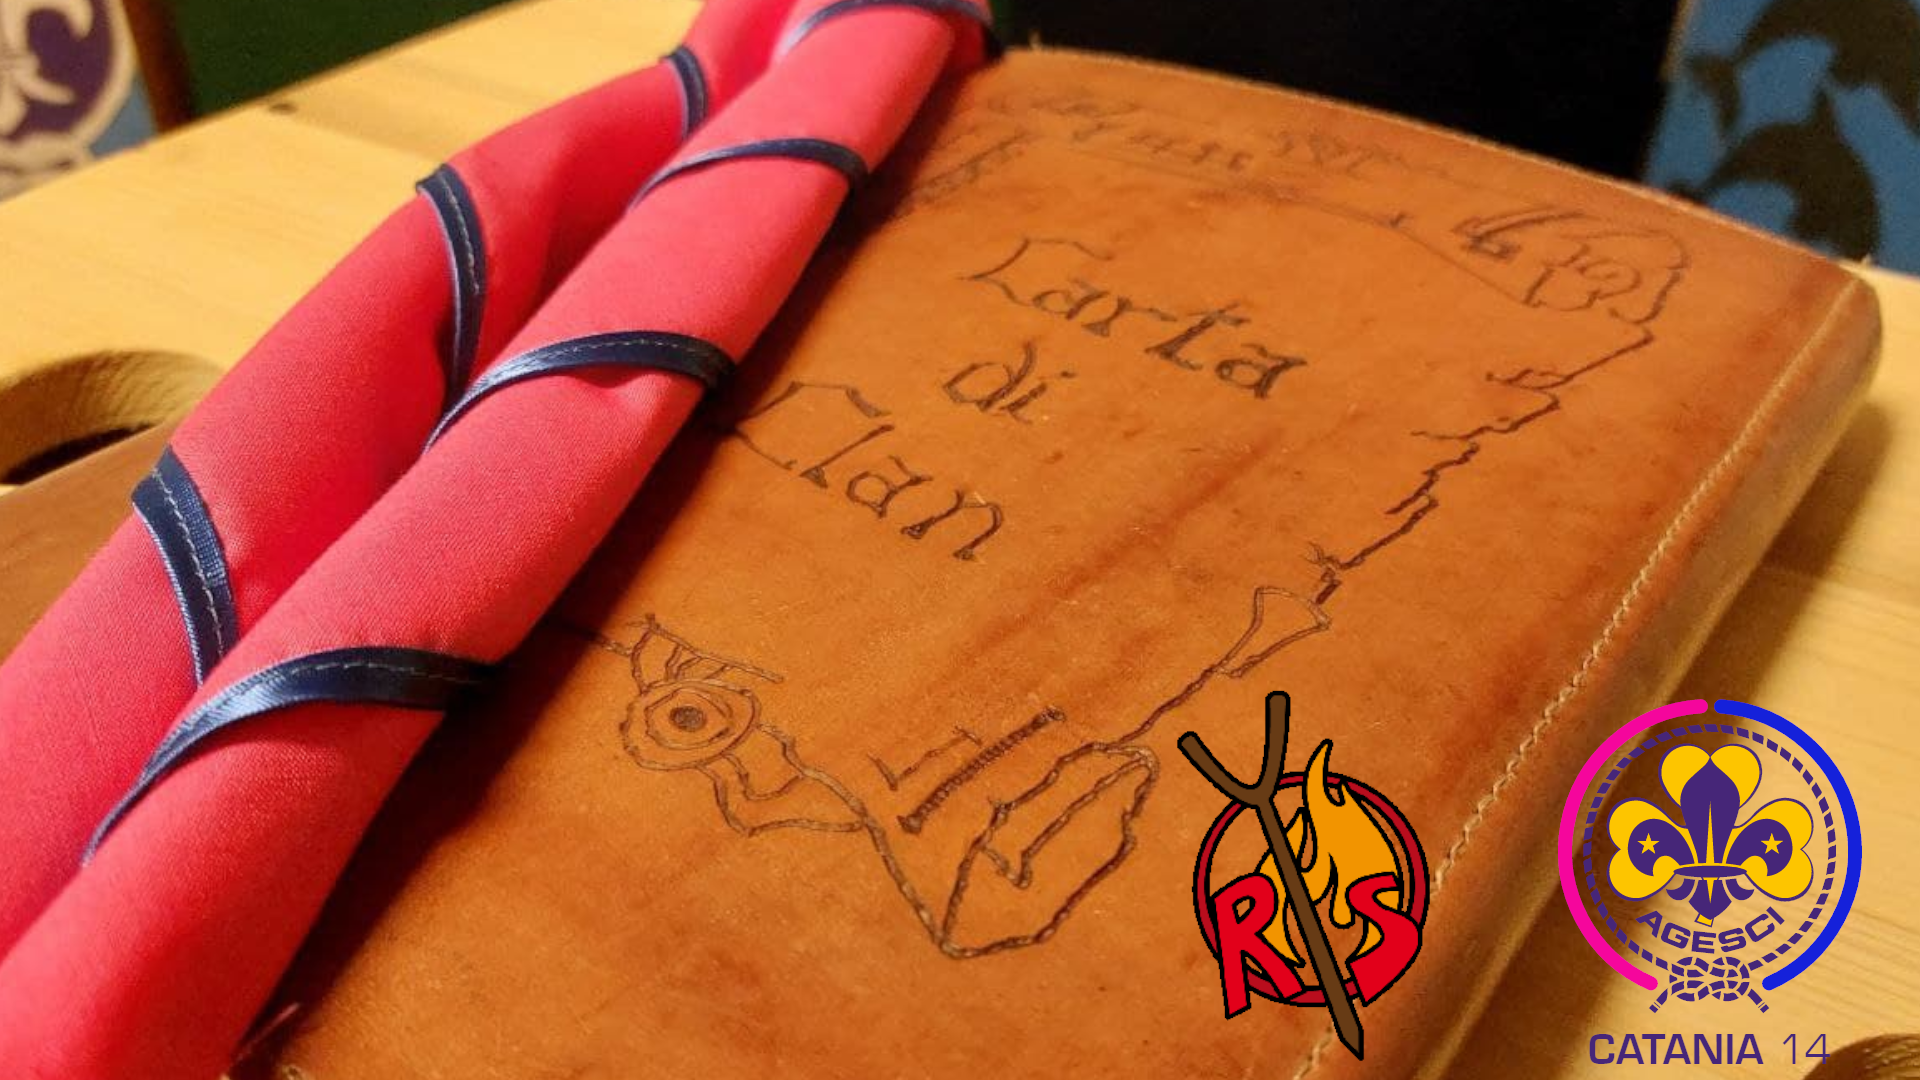 Carta
di
Clan
R S
AGESCI
CATANIA 14